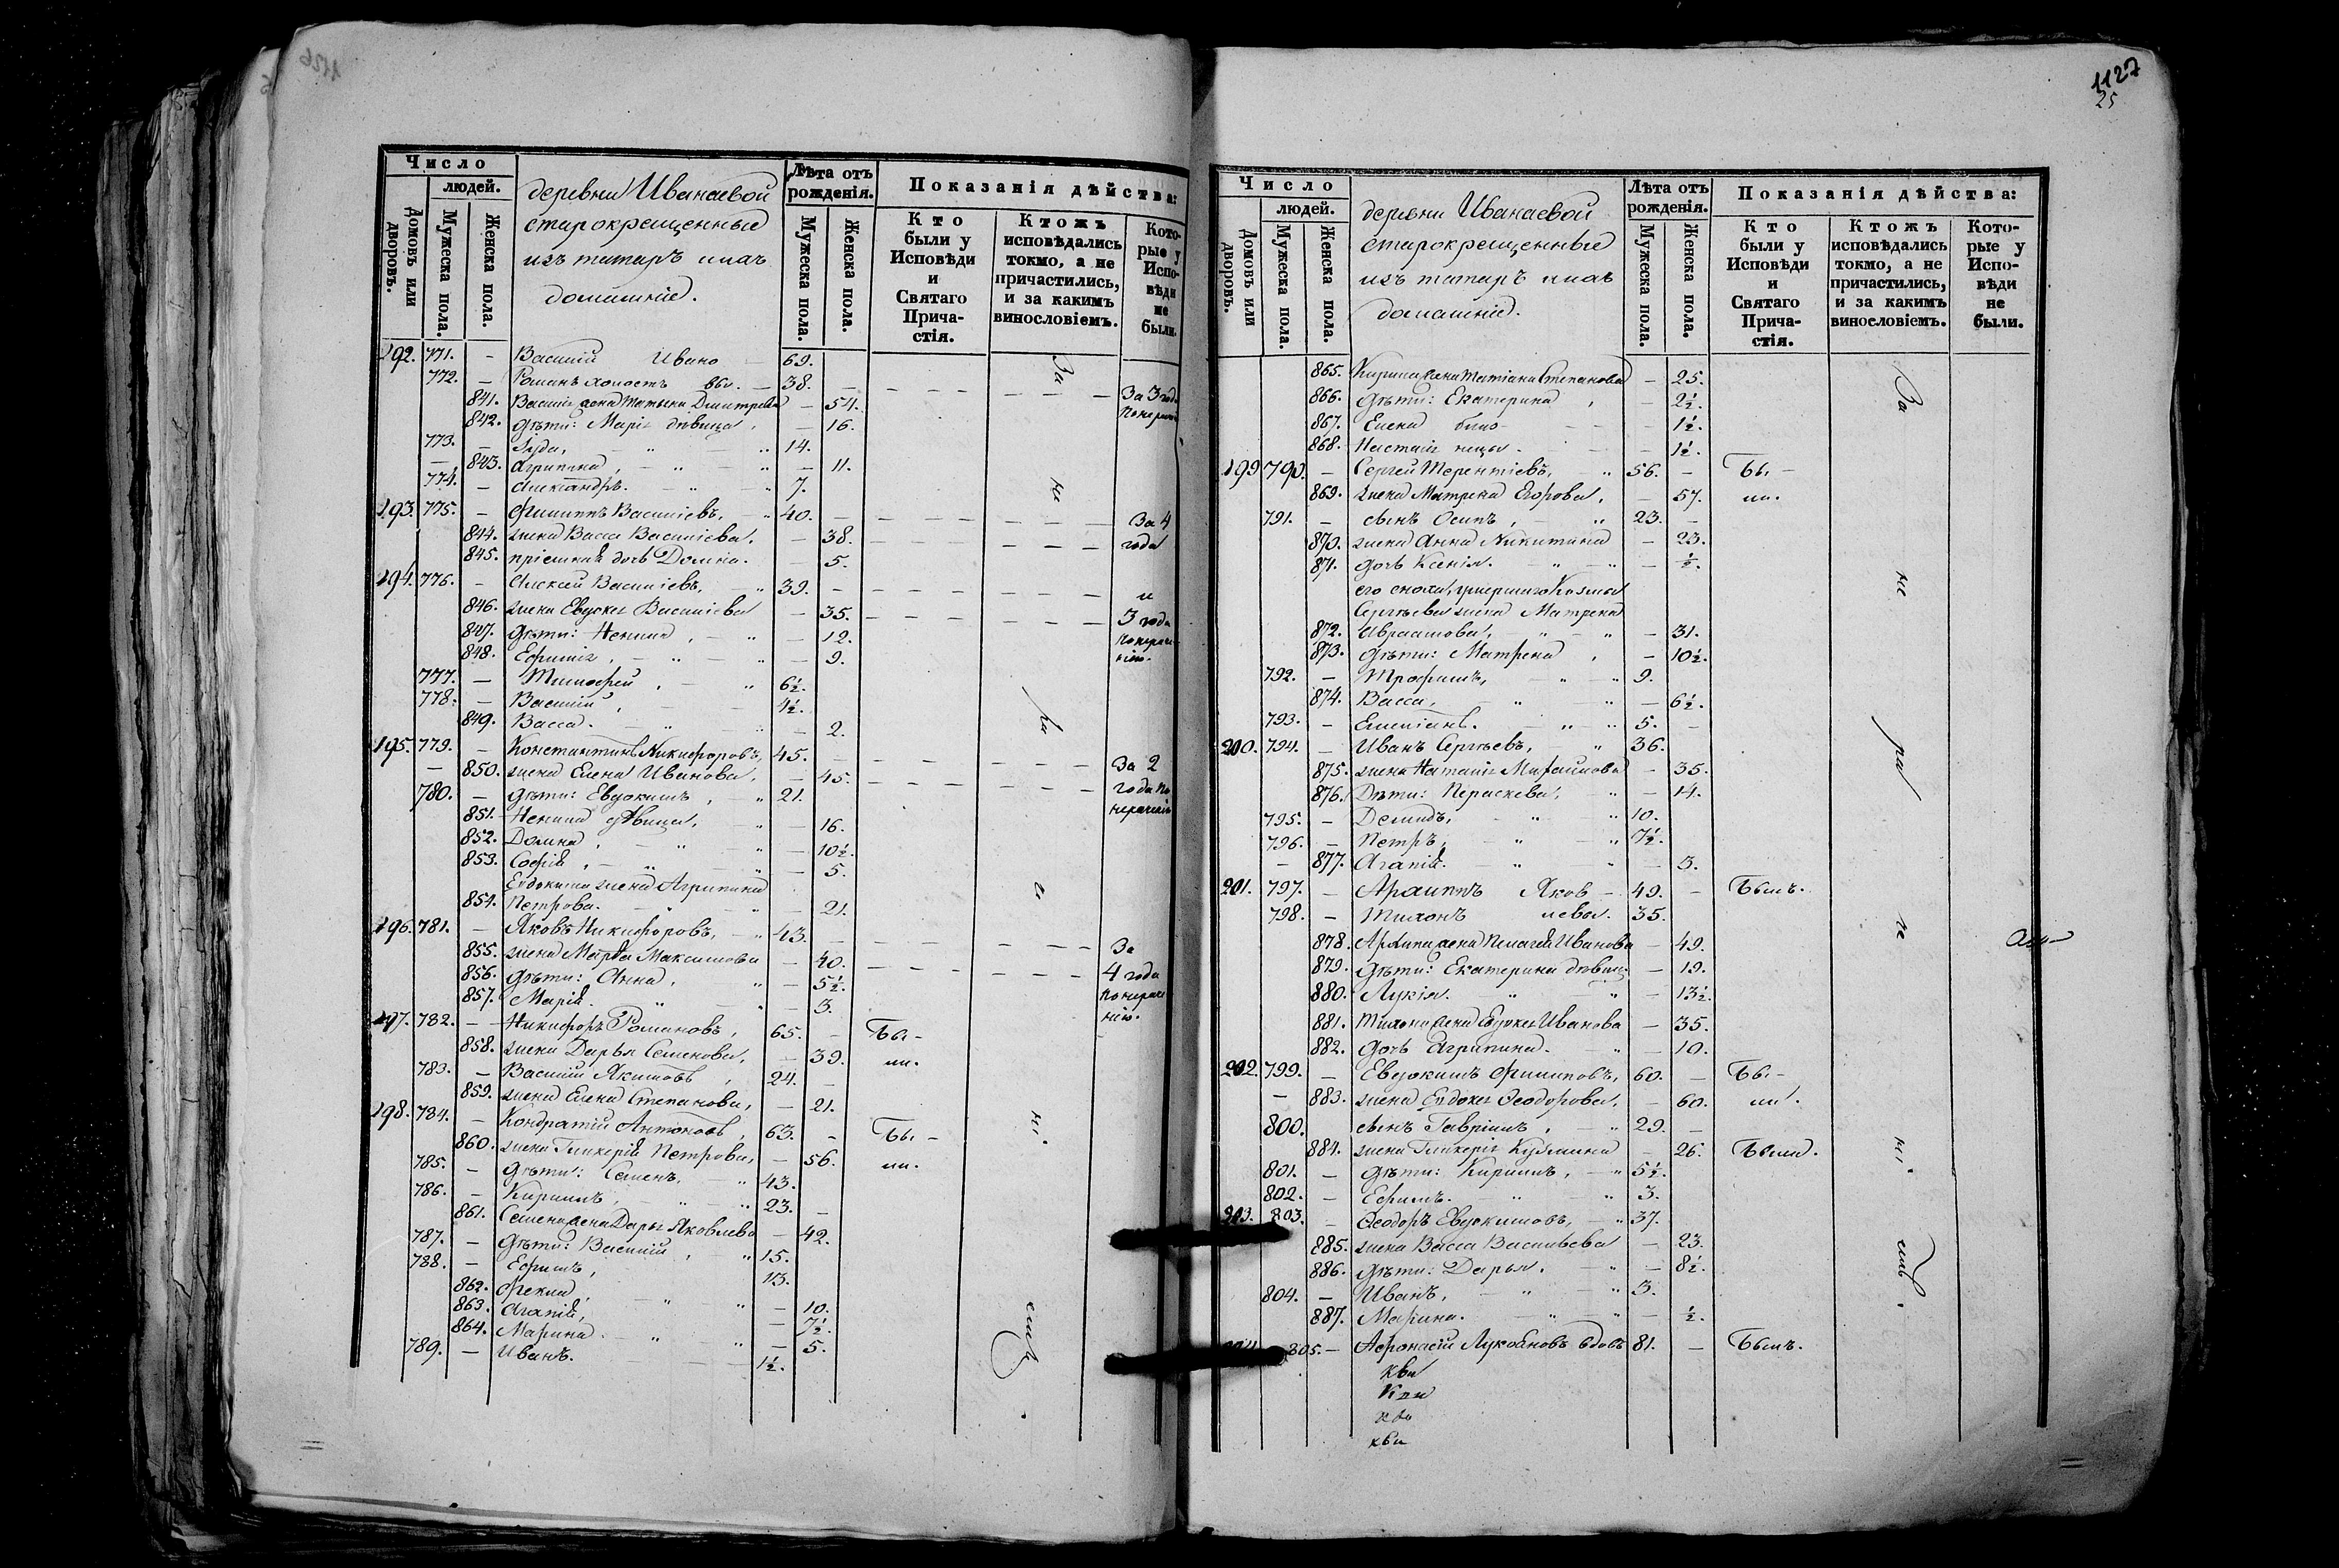 Число
людей.
Домовъ или дворовъ.
Мужеска пола.
Женска пола.
деревни Иванаевой
старокрещенные
изъ татаръ они же
домашніе.
Лѣта отъ рожденія.
Мужеска пола.
Женска пола.
Показанія дѣйства:
Кто были у Исповѣди и Святаго Прича-стія.
Ктожъ исповѣдались токмо, а не причастились, и за какимъ винословіемъ.
Кото-рые у Испо-вѣди не были.
192. 771. – Василій Ивано – 69.
772. – Романъ холостъ вы. – 38. – За 3 года
841. Василія жена Татьяна Дмитрева – 54.
842. дѣти: Марія дѣвица, – 16.
773. – Іуда, 14.
– 843. Агрипина, – 11.
774. – Александръ. 7.
193. 775. – Филиппъ Василіевъ, 40. – За 4
844. жена Васса Василіева. – 38. года
845. пріемная дочь Домна. – 5.
194. 776. – Алексѣй Василіевъ, 39. – и
846. жена Евдокія Василіева – 35. 3 года
847. дѣти: Ненила, – 12.
848. Ефимія, – 9.
777. – Тимофей, 6½.
778. – Василій, 1½.
849. Васса. – 2.
195. 779. – Константинъ Никифоровъ, 45. – За 2
– 850. жена Елена Иванова, – 45. года по
780. – дѣти: Евдокимъ, 21. нераченію
851. Ненила дѣвица, – 16.
852. Домна, – 10½.
853. Софія, – 5.
Евдокима жена Агрипина
854. Петрова. – 21.
196. 781. – Яковъ Никифоровъ, 43. – За
855. жена Марѳа Максимова – 40. 4 года
856. дѣти: Анна, – 5½.
857. Марія. – 3. нію.
197. 782. – Никифоръ Романовъ, 65. – Бы –
858. жена Дарья Семенова, – 39. ли.
783. – Василій Якимовъ, 24. –
859. жена Елена Степанова, – 21.
198. 784. – Кондратій Антоновъ, 63. – Бы –
860. жена Гликерія Петрова, – 56. ли.
785. – дѣти: Семенъ, 43.
786. – Кирилъ, 23. –
861. Семена жена Дарья Яковлева – 42.
787. – дѣти: Василій, 15.
788. – Ефимъ, 13.
862. Фекла, – 10.
863. Агапія, – 7½.
864. Марина. – 5.
789. – Иванъ. 1½.
За не ра че ні емъ.
1127
25
Число
людей.
Домовъ или дворовъ.
Мужеска пола.
Женска пола.
деревни Иванаевой
старокрещенные
изъ татаръ они же
домашніе.
Лѣта отъ рожденія.
Мужеска пола.
Женска пола.
Показанія дѣйства:
Кто были у Исповѣди и Святаго Прича-стія.
Ктожъ исповѣдались токмо, а не причастились, и за какимъ винословіемъ.
Кото-рые у Испо-вѣди не были.
865. Кирила жена Татіана Степанова – 25.
866. дѣти: Екатерина, – 2½.
867. Елена близ – 1½.
868. Наталія нецы. – 1½.
199 790. – Сергей Терентіевъ, 56. – Бы –
869. жена Матрена Егорова, – 57. ли.
791. – сынъ Осипъ, 23. –
870. жена Анна Никитина – 23.
871. дочь Ксенія. – ½.
его сноха, умершаго Козмы
Сергѣева жена Матрена
872. Авраамова, – 31.
873. дѣти: Матрена, – 10½.
792. – Трофимъ, 9.
874. Васса, – 6½.
793. – Емиліанъ. 5. –
200. 794. – Иванъ Сергѣевъ, 36.
875. жена Наталія Михайлова – 35.
876. Дѣти: Параскева, – 14.
795. – Демидъ, 10.
796. – Петръ, 7½.
– 877. Агапія. – 3.
201. 797. – Архиппъ Яков – 49. – Былъ.
798. – Тихонъ левы. 35.
878. Архипа жена Пелагея Иванова – 49.
879. дѣти: Екатерина дѣвица – 19.
880. Лукія. – 13½.
881. Тихона жена Евдокія Иванова – 35.
882. дочь Агрипина. – 10.
202. 799. – Евдокимъ Филиповъ, 60. – Бы –
– 883. жена Евдокія Ѳеодорова, – 60. ли.
800. сынъ Гавріилъ, 29. –
884. жена Гликерія Кузмина – 26. Были.
801. – дѣти: Кирилъ, 5½.
802. – Ефимъ. 3.
203. 803. – Ѳеодоръ Евдокимовъ, 37.
885. жена Васса Васильева – 23.
886. дѣти: Дарья. – 8½.
804. – Иванъ, 3.
887. Марина. – ½.
805. – Афонасій Лукояновъ вдовъ 81. – Былъ.
За не ра че ні емъ.